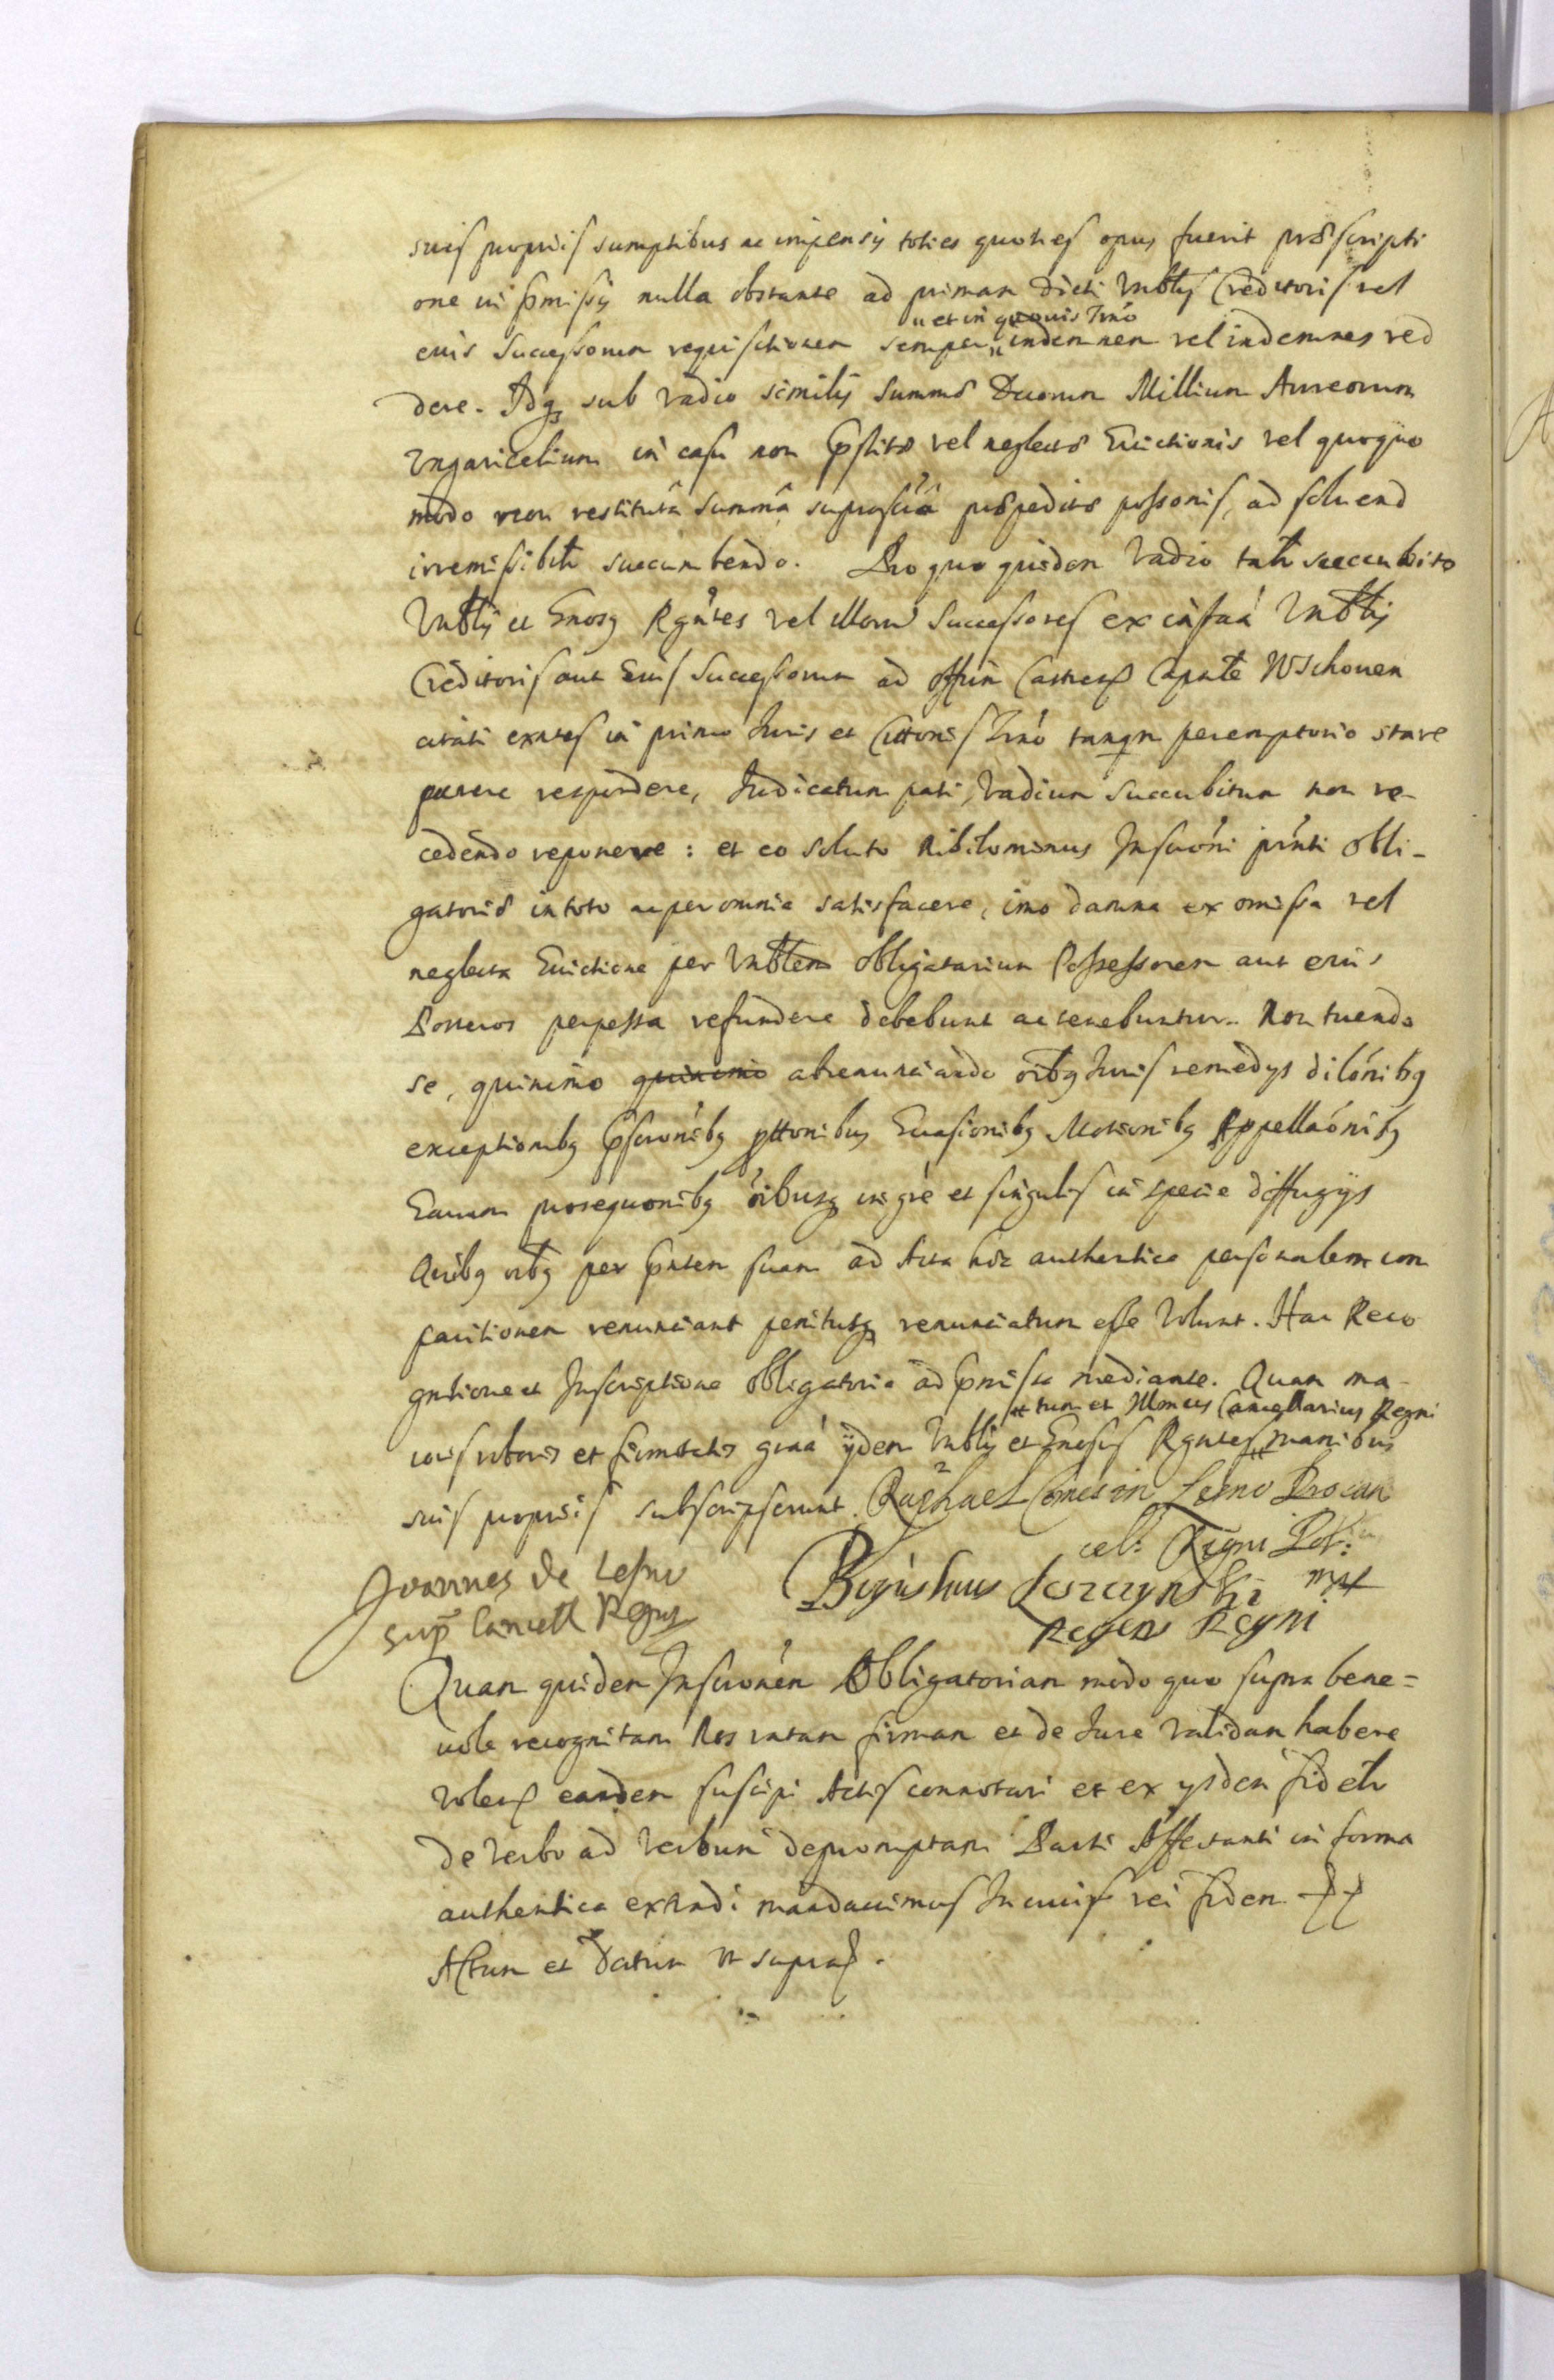 suis proprijs sumptibus ac impensijs toties quoties opus fuerit præscripti
one in pmissis nulla obstante ad primam dicti Vnblis Creditoris vel
" et in quouis Trno
eius Successorum requisitionem semper " indemnem vel indemnes red
dere. Idq3 sub vadio similis summæ Duorum Millium Aureorum
Vngaricalium in casu non pstitæ vel neglectæ Euictionis vel quoquo
modo non restitutâ summâ suprascâ præpedictæ possonis, ad soluend
irremissibilr succumbendo. Pro quo quidem Vadio talr succubito
Vnblis et Gnosq Rgntes vel illorũ Successores ex instaã Vnblis
Creditoris aut Eius Successorum ad offm Castren Capnle Wschouen
citati extes in primo Iuris et Cittonis Trno tanqm peremptorio stare
parere respondere, Iudicatum pati, Vadium Succubitum non re-
cedendo reponere : et eo soluto nihilominus Inscrõni pñti Obli-
gatoriæ in toto ac per omnia satisfacere, imo damna ex omissa vel
neglecta Euictione per Vnblem Obligatarium Possessorem aut eius
Posteros perpessa refundere debebunt ac tenebuntur. Non tuendo
se, quinimo quinimo abrenunciando oibq Iuris remedys dilõnibq
exceptionibq pscronibq pttonibus Euasionibq Motionibq Appellaõnibq
Earum prosequonibq oibusq in gne et singulis in specie diffugijs
Quibq oibq per pntem suam ad Acta hæc authentica personalem com
paritionem renunciant penitusq renunciatum esse Volunt. Hac Reco
gnitione et Inscriptione Obligatoria ad pmissa mediante. Quam ma-
tum et Illmus Cancellarius Regni
ioris roboris et firmitatis graã ijdem Vnblis et Gnosis Rgntes manibus
suis proprijs subscripserunt. Raphael Comes in Leszno Procan
cel: Regni Pol:
Joannes de Lesno
sup Cancell Regni
Boguslaus Leszczynski mp
Regens Regni
Quam quidem Inscronẽm Obligatoriam modo quo supra bene=
uole recognitam Nos ratam firmam et de Iure Validam habere
volen eandem suscipi Actis connotari et ex ysdem fidelr
de verbo ad verbum depromptam Parti Affectanti in forma
authentica extradi mandauimus In cuius rei fidem
Actum et Datum vt supra.